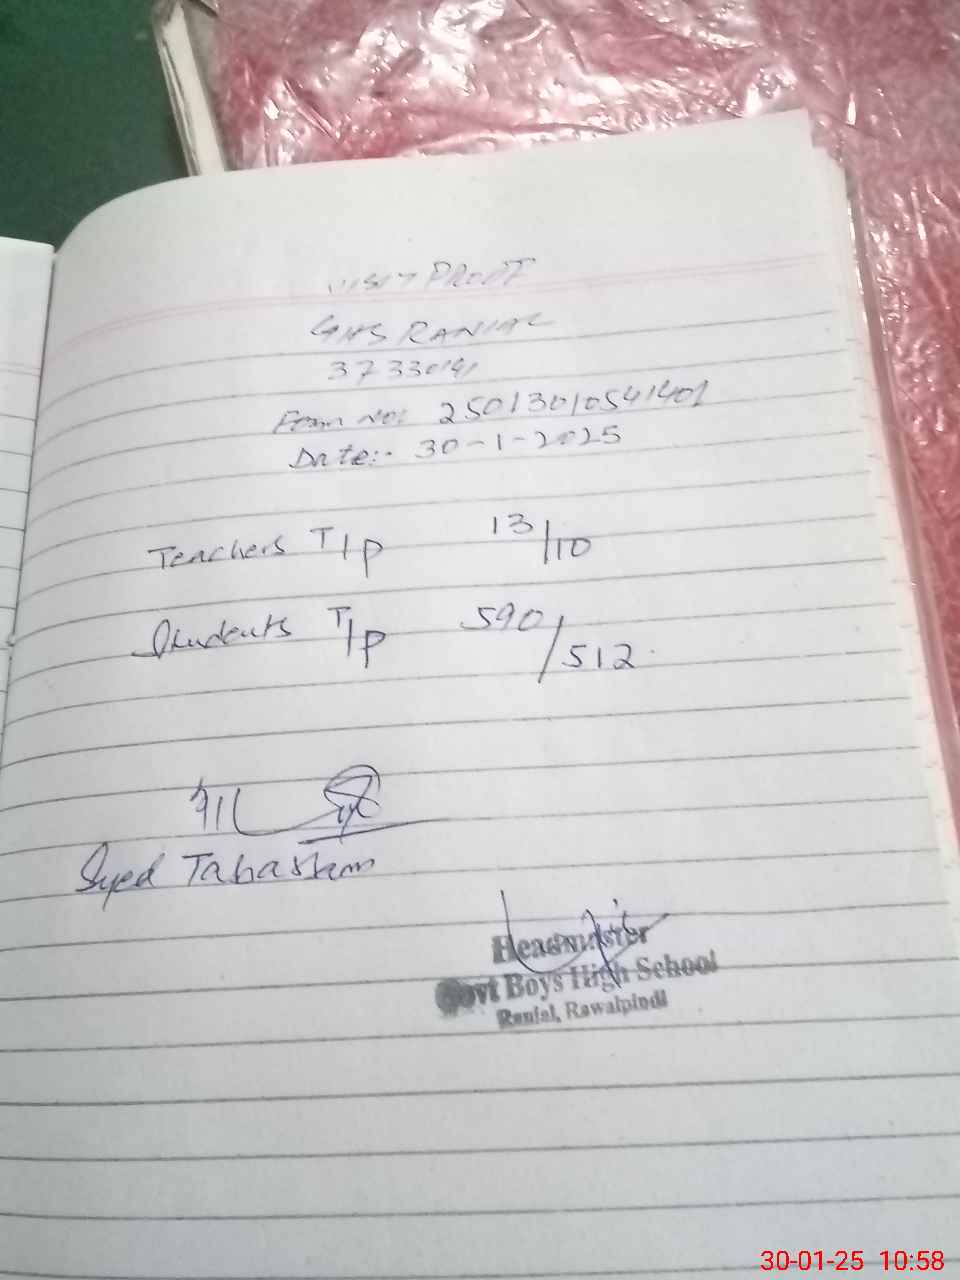 VISIT PROOF
GHS RANIAL
37330141
Form No: 25013010541401
Date:- 30-1-2025
Teachers T/P 13/10
Students T/P 590/512
Syed Tabassam
Headmaster
Govt Boys High School
Ranial, Rawalpindi
30-01-25 10:58